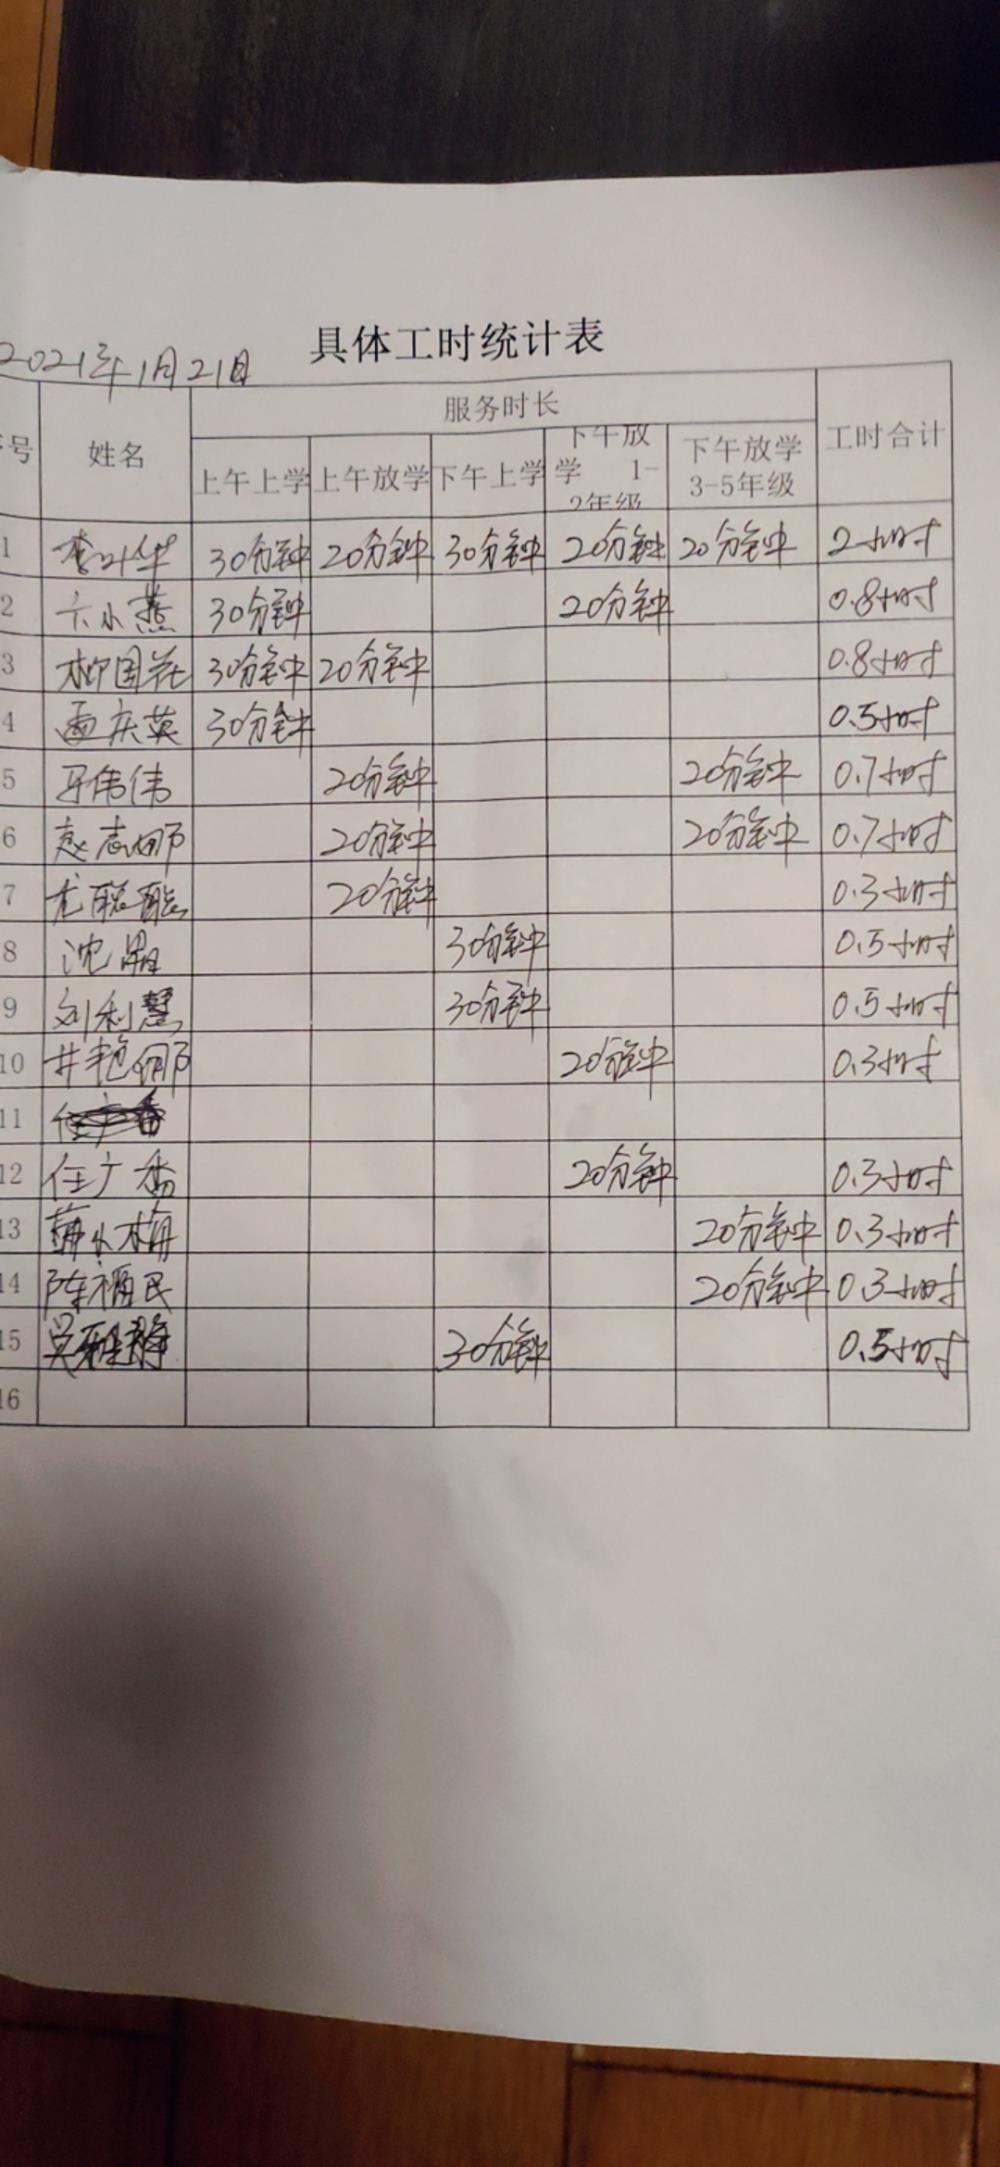 具体工时统计表
2021年1月21日
号 姓名 服务时长 工时合计
上午上学 上午放学 下午上学 下午放学 1-2年级 下午放学 3-5年级
1 李叶华 30分钟 20分钟 30分钟 20分钟 20分钟 2小时
2 小燕 30分钟 20分钟 0.8小时
3 柳国花 30分钟 20分钟 0.8小时
4 庆英 30分钟 0.5小时
5 牙伟伟 20分钟 20分钟 0.7小时
6 赵志娜 20分钟 20分钟 0.7小时
7 尤聪聪 20分钟 0.3小时
8 沈晶 30分钟 0.5小时
9 刘利慧 30分钟 0.5小时
10 井艳娜 20分钟 0.3小时
11
12 任广香 20分钟 0.3小时
13 薛小梅 20分钟 0.3小时
14 陈福民 20分钟 0.3小时
15 吴雅静 30分钟 0.5小时
16